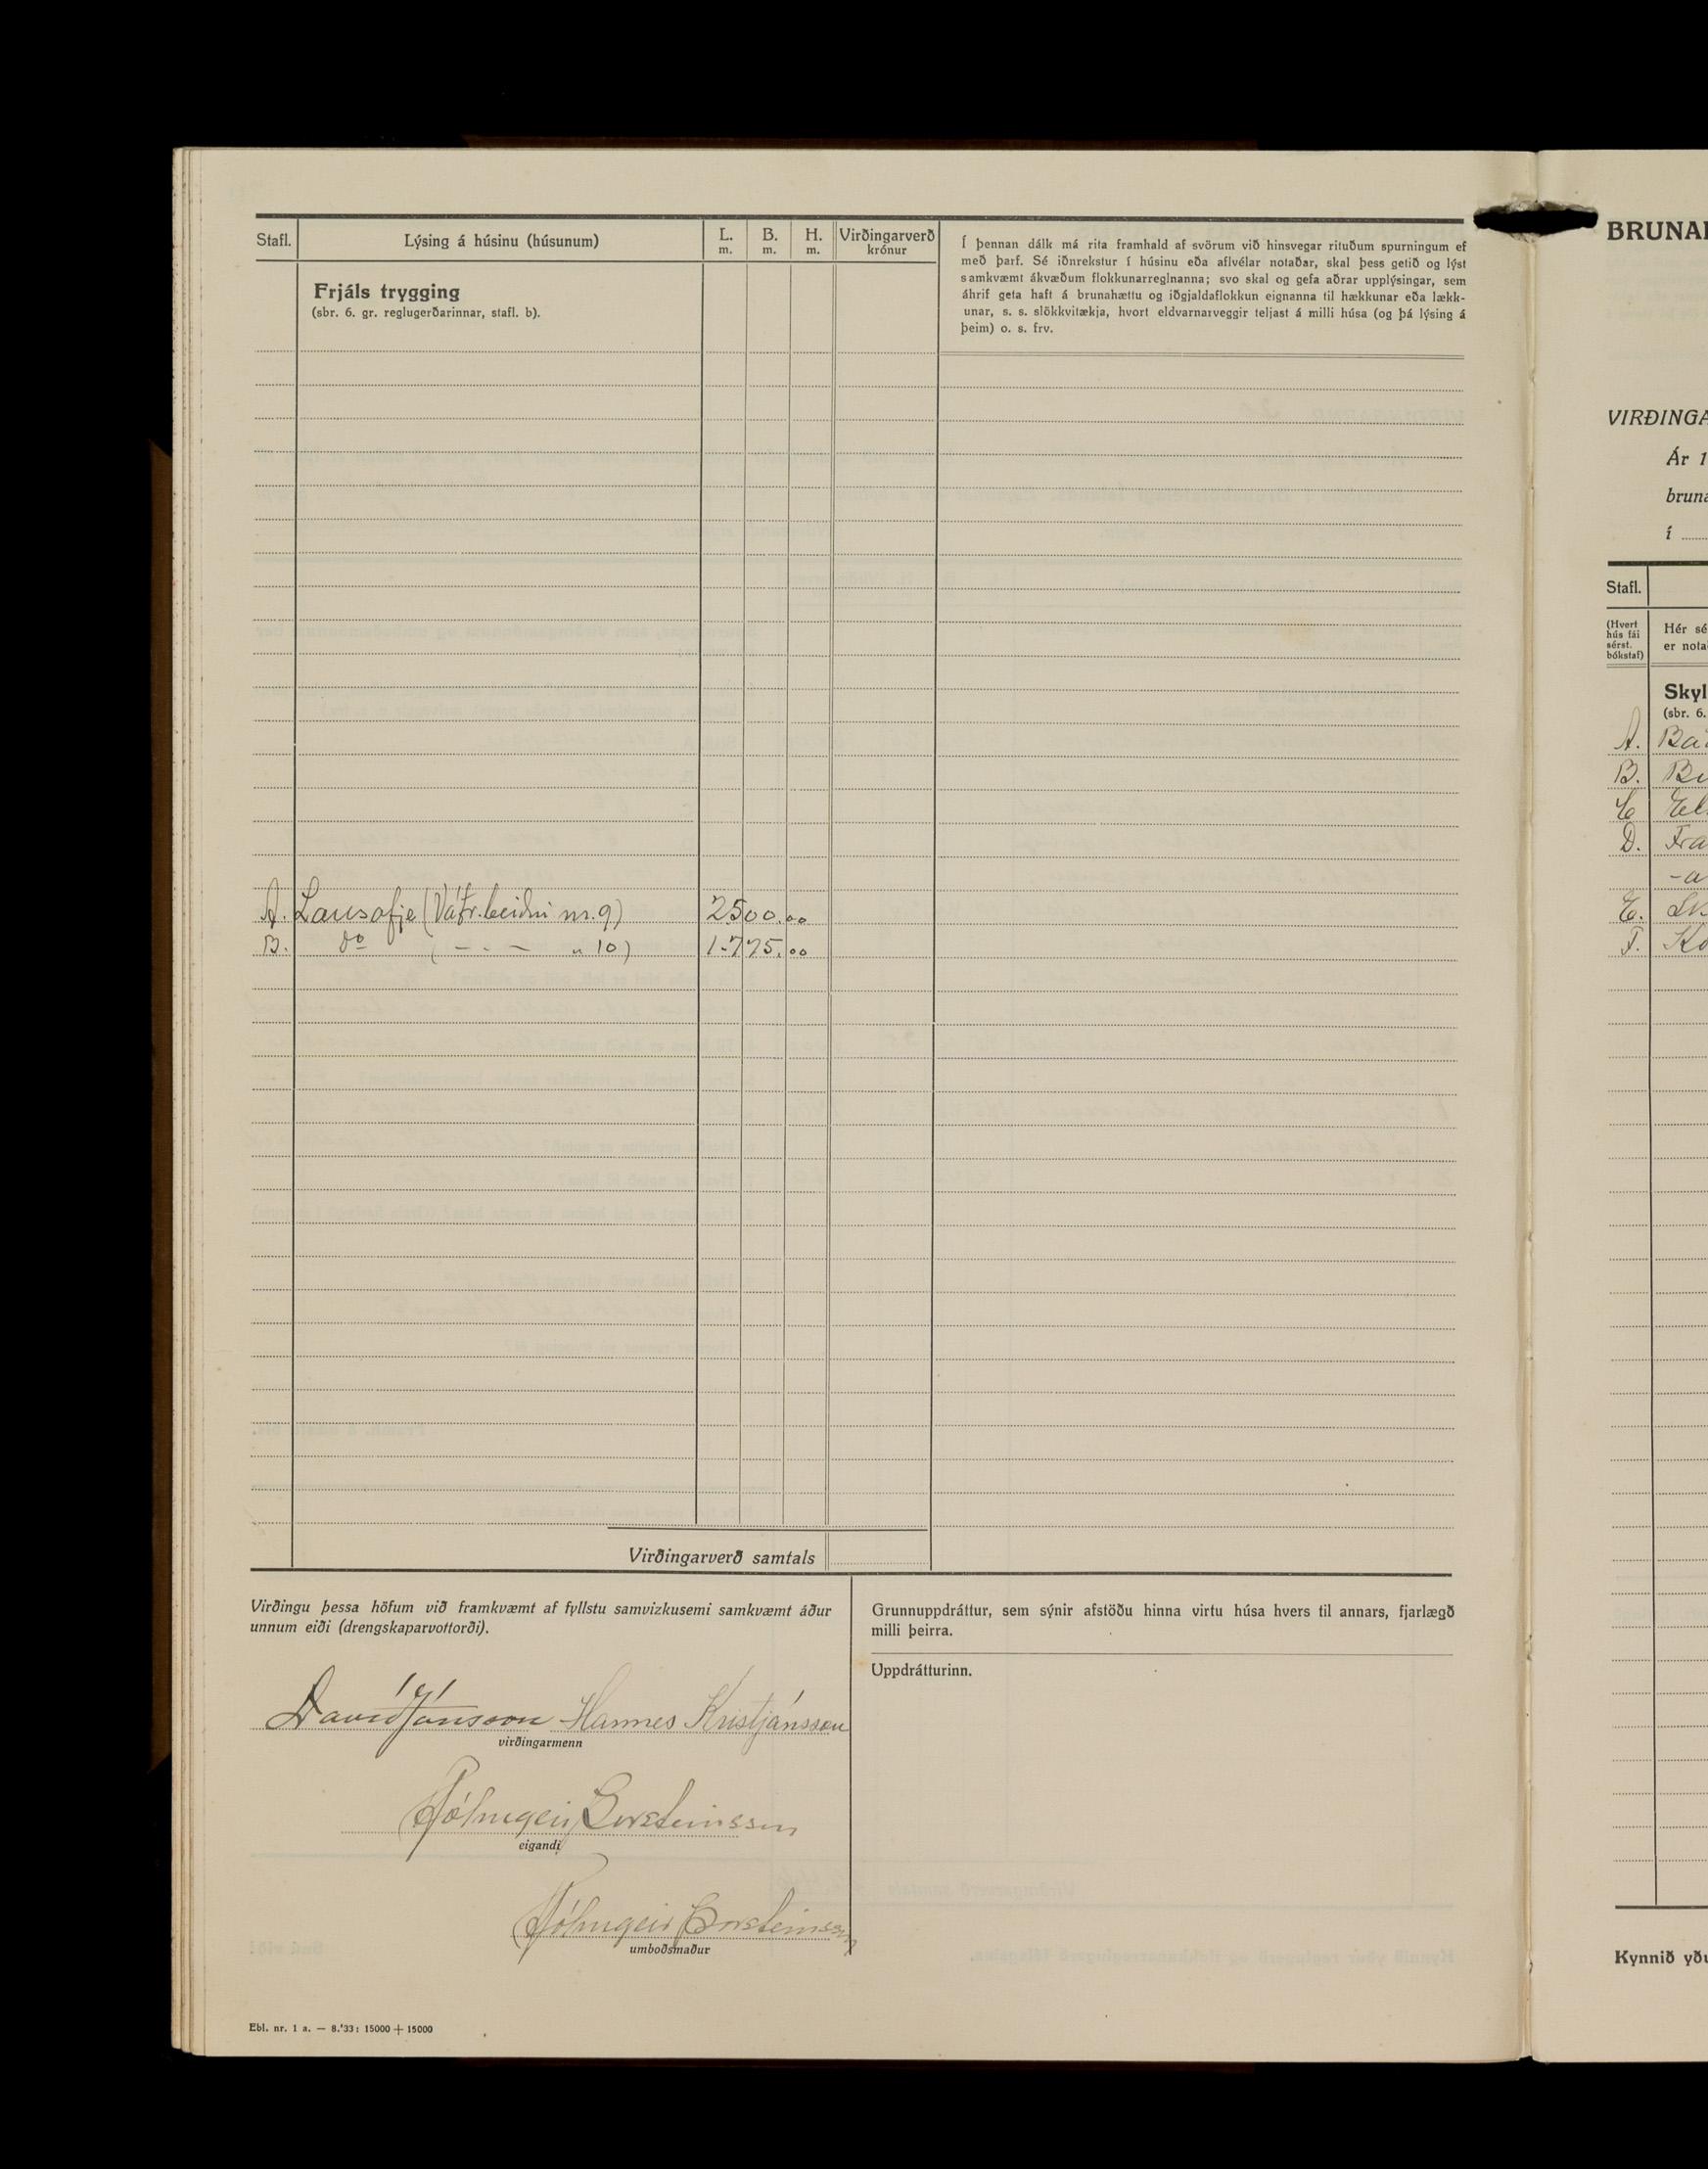 Stafl. Lýsing á húsinu (húsunum) L. m. B. m. H. m. Virðingarverð krónur
Frjáls trygging
(sbr. 6. gr. reglugerðarinnar, stafl. b).
Í þennan dálk má rita framhald af svörum við hinsvegar rituðum spurningum ef
með þarf. Sé iðnrekstur í húsinu eða aflvélar notaðar, skal þess getið og lýst
samkvæmt ákvæðum flokkunarreglnanna; svo skal og gefa aðrar upplýsingar, sem
áhrif geta haft á brunahættu og iðgjaldaflokkun eignanna til hækkunar eða lækk-
unar, s. s. slökkvitækja, hvort eldvarnarveggir teljast á milli húsa (og þá lýsing á
þeim) o. s. frv.
A. Lausafje (Vátr.beiðni nr. 9) 2500.00
B. do ( — . — „ 10) 1.775.00
Virðingarverð samtals
Virðingu þessa höfum við framkvæmt af fyllstu samvizkusemi samkvæmt áður
unnum eiði (drengskaparvottorði).
Davíð Jónsson Hannes Kristjánsson
virðingarmenn
Hólmgeir Þorsteinsson
eigandi
Hólmgeir Þorsteinsson
umboðsmaður
Grunnuppdráttur, sem sýnir afstöðu hinna virtu húsa hvers til annars, fjarlægð
milli þeirra.
Uppdrátturinn.
Ebl. nr. 1 a. — 8.'33: 15000 + 15000
BRUNA
VIRÐINGA
Ár 1
bruna
í
Stafl.
(Hvert
hús fái
sérst.
bókstaf)
Hér sé
er nota
Skyl
(sbr. 6.
A. Ba
B.
C
D. Fra
E.
F.
Kynnið yðu